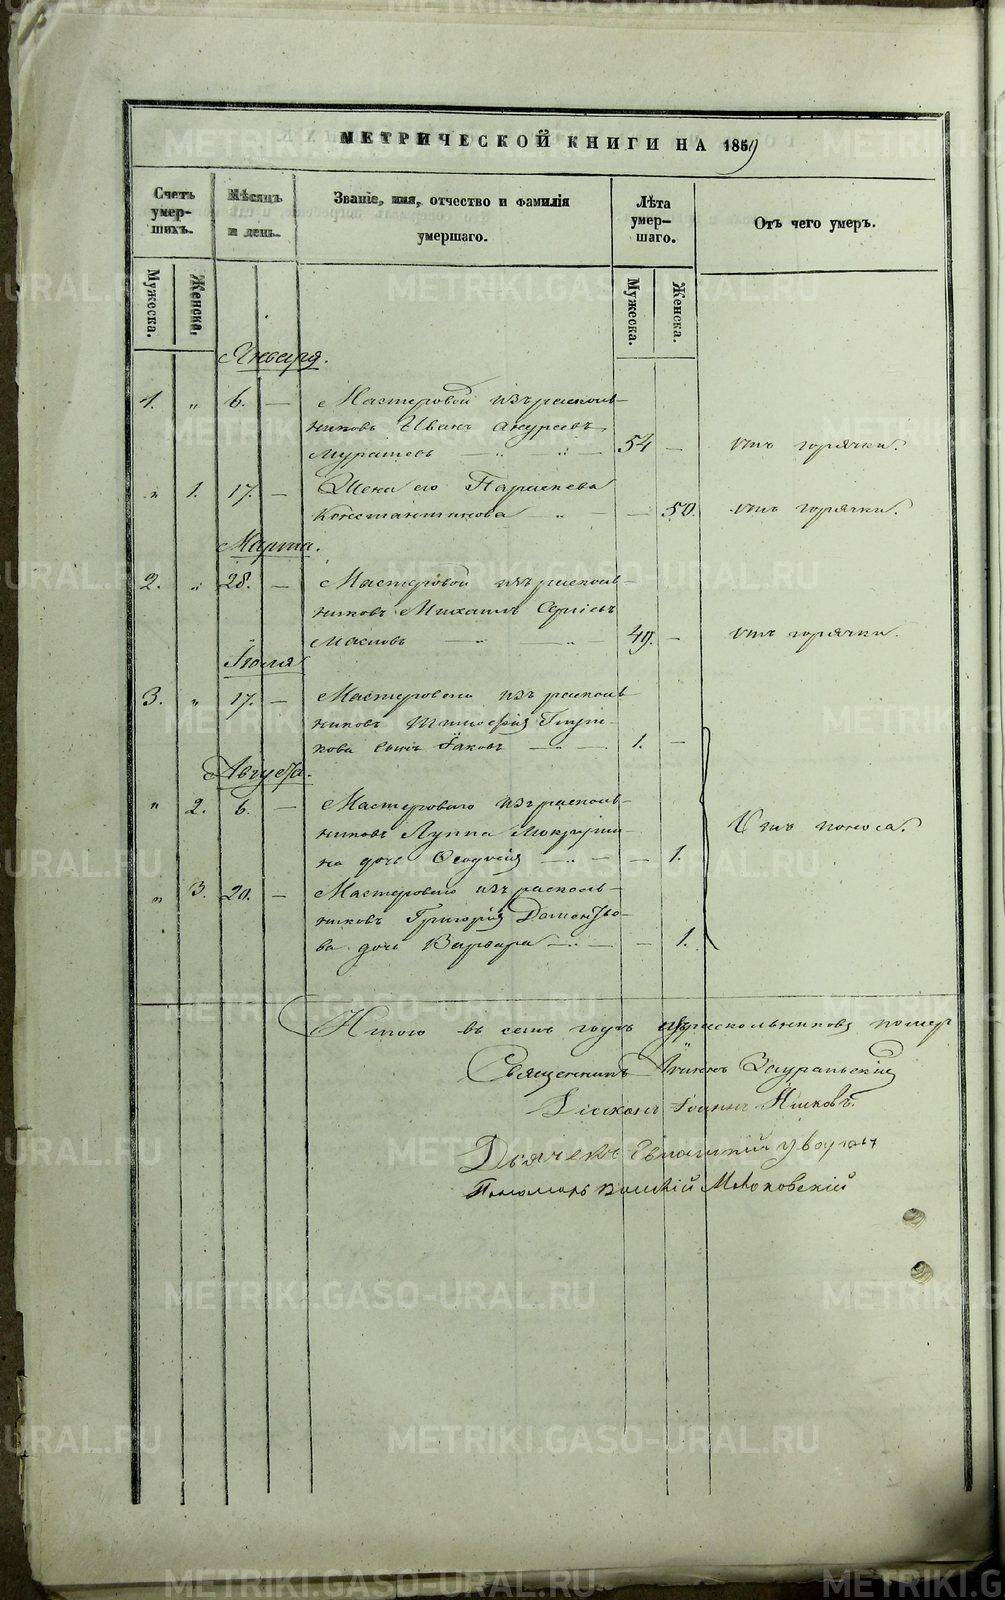 МЕТРИЧЕСКОЙ КНИГИ НА 1859
Счетъ умер- шихъ.
Мѣсяцъ и день.
Званіе, имя, отчество и фамилія умершаго.
Лѣта умер- шаго.
Отъ чего умеръ.
Мужеска.
Женска.
Мужеска.
Женска.
Января.
1. „ 6. — Мастеровой изъ расколь-
никовъ Иванъ Андреевъ
Муратовъ — „ — 54 — отъ горячки.
„ 1. 17. — Жена его Параскева
Константинова „ — — 50. отъ горячки.
Марта.
2. „ 28. — Мастеровой изъ расколь-
никовъ Михаилъ Сергіевъ
Масловъ — „ — 49. — отъ горячки.
Іюля
3. „ 17. — Мастероваго изъ расколь-
никовъ Тимофея
кова сынъ Іаковъ — „ — 1. —
Августа.
„ 2. 6. — Мастероваго изъ расколь-
никовъ Луппа
на дочь Ѳеодосія — „ — — 1. Отъ поноса.
„ 3. 20. — Мастероваго изъ расколь-
никовъ Григорія Дементье-
ва дочь Варвара — „ — — 1.
Итого въ семъ годѣ изъ раскольниковъ помер
Священникъ Іоаннъ Зауральскій
Діаконъ Іоаннъ
Дьячекъ Евлампий
Пономарь
METRIKI.GASO-URAL.RU